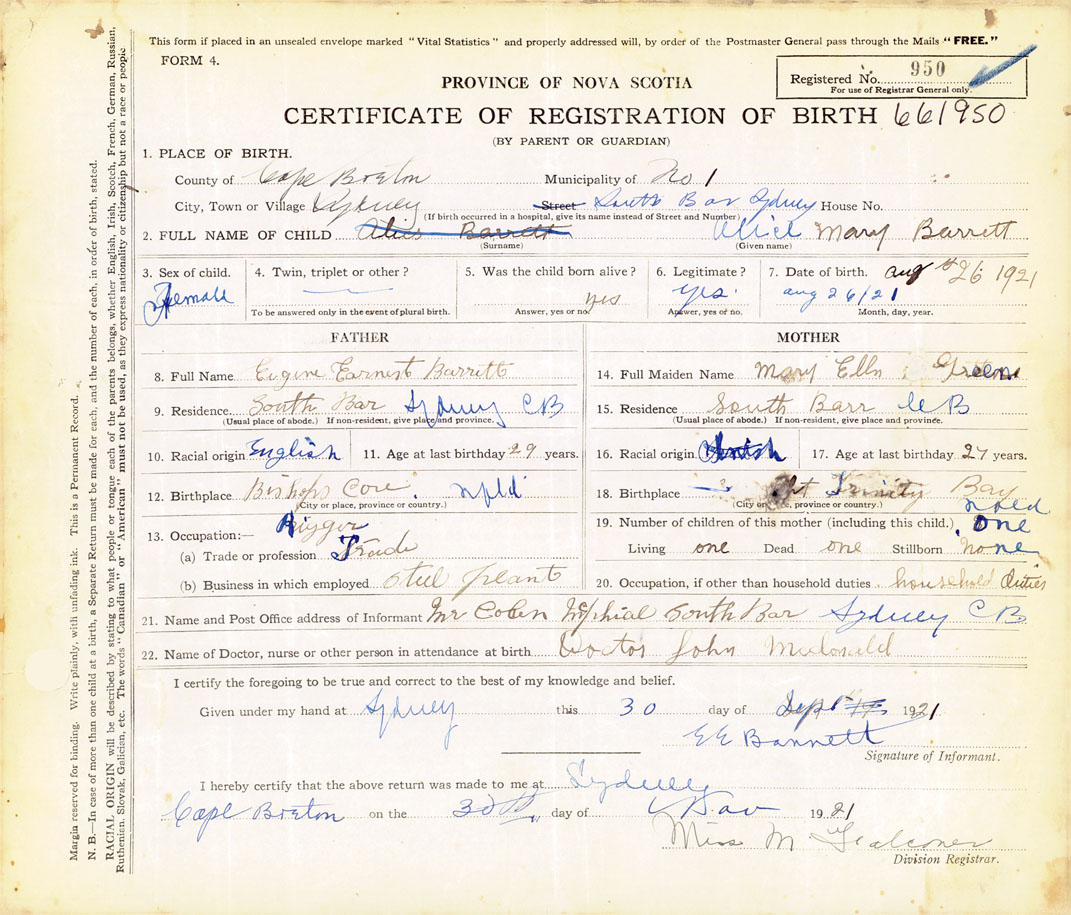 This form if placed in an unsealed envelope marked "Vital Statistics" and properly addressed will, by order of the Postmaster General pass through the Mails "FREE."
FORM 4.
Registered No. 950
For use of Registrar General only.
PROVINCE OF NOVA SCOTIA
CERTIFICATE OF REGISTRATION OF BIRTH 661950
(BY PARENT OR GUARDIAN)
1. PLACE OF BIRTH.
County of Cape Breton Municipality of No 1
City, Town or Village Sydney Street South Bar Sydney House No.
(If birth occurred in a hospital, give its name instead of Street and Number)
2. FULL NAME OF CHILD Alice Barrett Alice Mary Barrett
(Surname) (Given name)
3. Sex of child. 4. Twin, triplet or other? 5. Was the child born alive? 6. Legitimate? 7. Date of birth. aug 26 1921
Female yes yes. aug 26/21
To be answered only in the event of plural birth. Answer, yes or no. Answer, yes or no. Month, day, year.
FATHER MOTHER
8. Full Name Eugine Earnest Barrett 14. Full Maiden Name Mary Ellen Green
9. Residence South Bar Sydney CB 15. Residence South Barr CB
(Usual place of abode.) If non-resident, give place and province. (Usual place of abode.) If non-resident, give place and province.
10. Racial origin English 11. Age at last birthday 29 years. 16. Racial origin 17. Age at last birthday 27 years.
12. Birthplace Bishops Cove. Nfld 18. Birthplace Trinity Bay
(City or place, province or country.) (City or place, province or country.) nfld
13. Occupation:— Rigger 19. Number of children of this mother (including this child.) one
(a) Trade or profession Trade Living one Dead one Stillborn none
(b) Business in which employed Steel plant 20. Occupation, if other than household duties household duties
21. Name and Post Office address of Informant Mr South Bar Sydney C B
22. Name of Doctor, nurse or other person in attendance at birth Doctor John
I certify the foregoing to be true and correct to the best of my knowledge and belief.
Given under my hand at Sydney this 30 day of Sept 1921
E E Barrett
Signature of Informant.
I hereby certify that the above return was made to me at Sydney
Cape Breton on the 30th day of 1921
Miss M Falconer
Division Registrar.
Margin reserved for binding. Write plainly, with unfading ink. This is a Permanent Record.
N. B.—In case of more than one child at a birth, a Separate Return must be made for each, and the number of each, in order of birth, stated.
RACIAL ORIGIN will be described by stating to what people or tongue each of the parents belongs, whether English, Irish, Scotch, French, German, Russian,
Ruthenian, Slovak, Galician, etc. The words "Canadian" or "American" must not be used, as they express nationality or citizenship but not a race or people